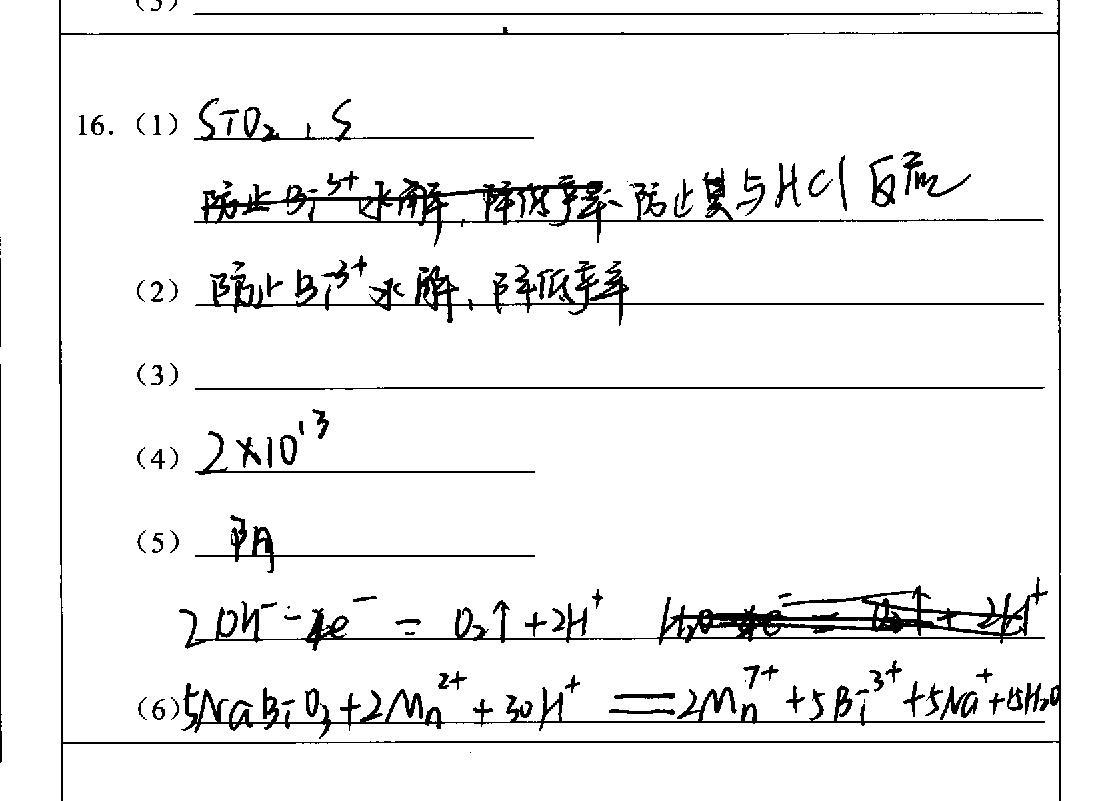 (3)
16. (1) SiO₂, S
防止Bi³⁺水解，降低产率、防止其与HCl反应
(2) 防止Bi³⁺水解，降低产率
(3)
(4) 2×10¹³
(5) 阴
2OH⁻-4e⁻=O₂↑+2H⁺ H₂O-4e⁻=O₂↑+2H⁺
(6) 5NaBiO₃+2Mn²⁺+30H⁺=2Mn⁷⁺+5Bi³⁺+5Na⁺+15H₂O